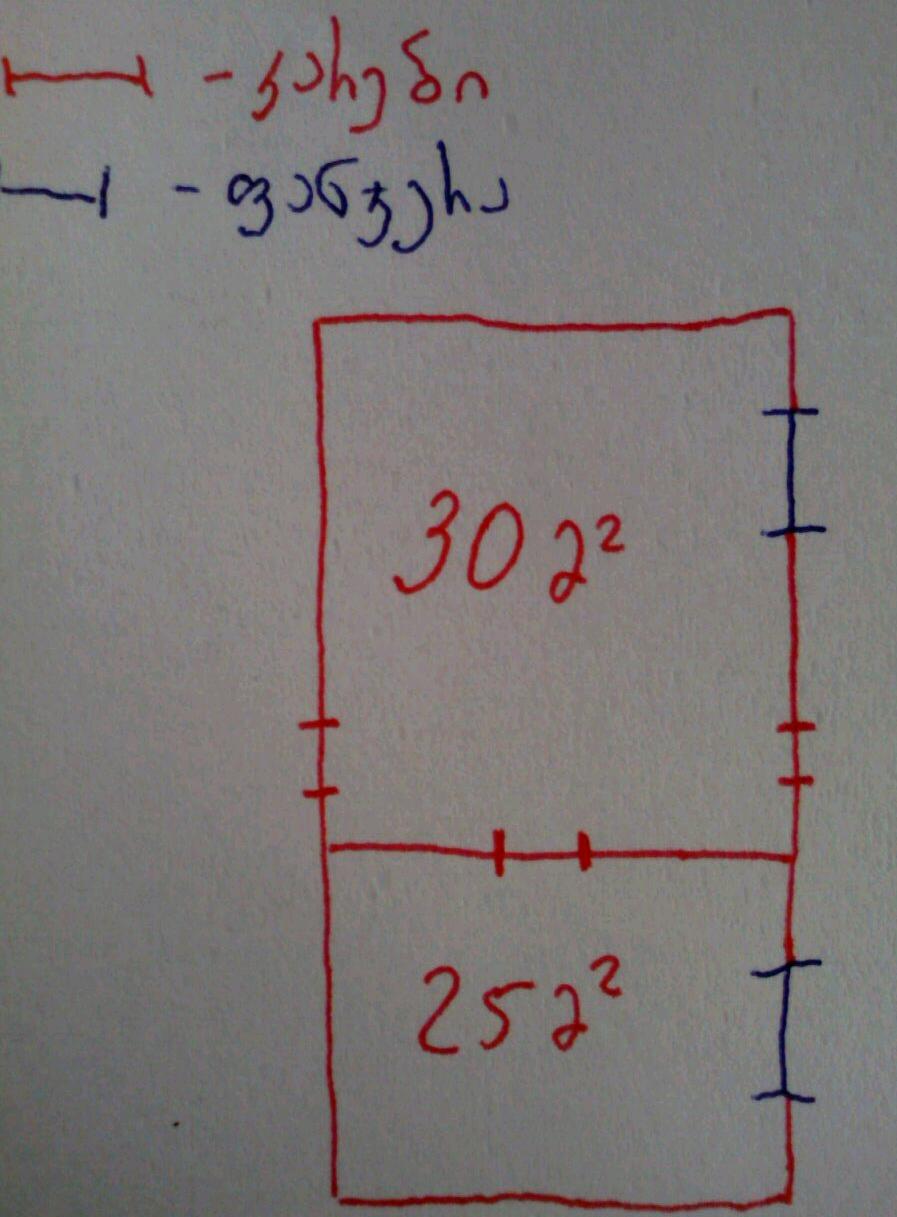 - კარები
- ფანჯერა
30 მ²
25 მ²